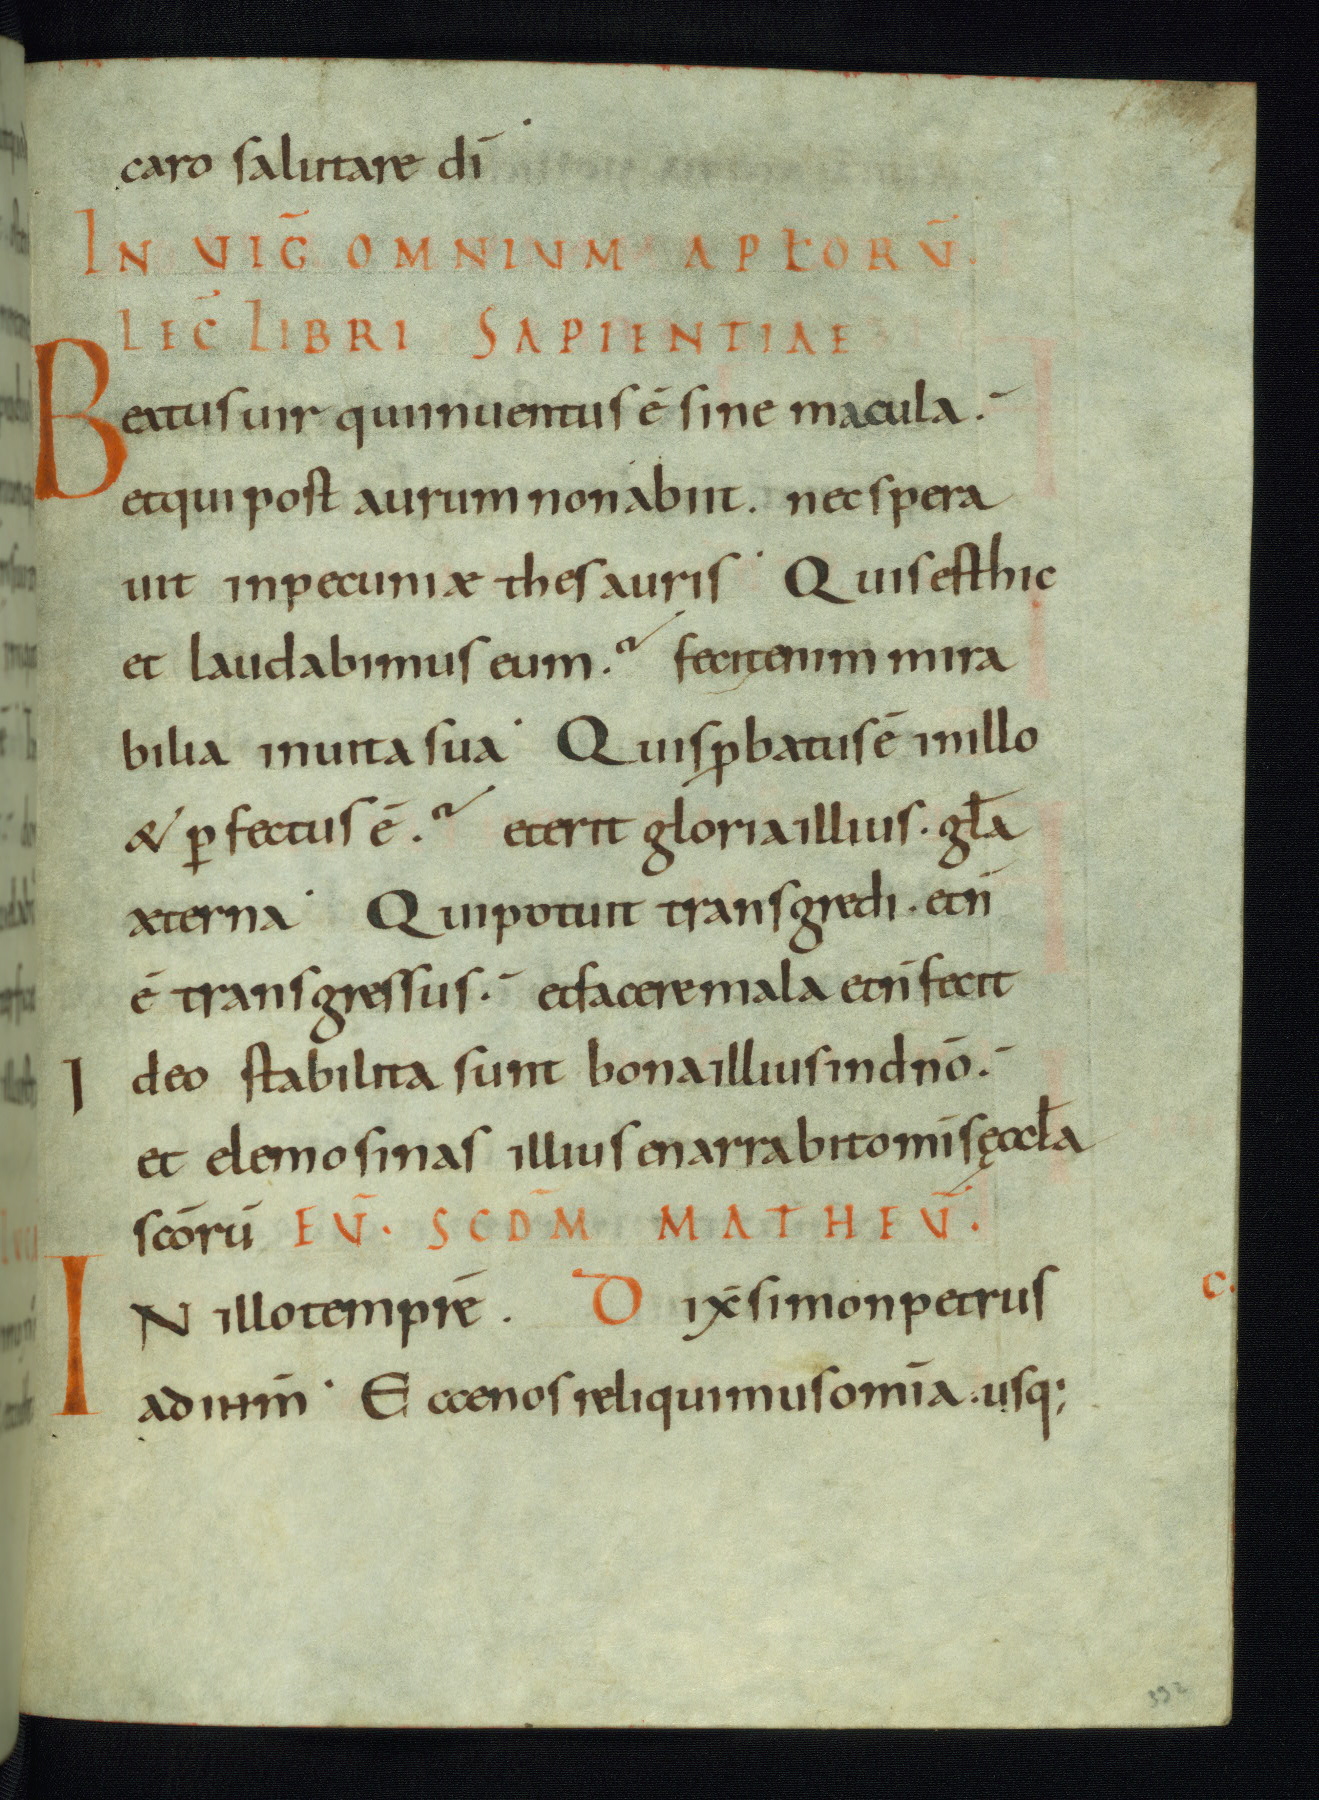 caro salutare dī
IN VIḠ OMNIVM APŁORV̄.
LEC̄ LIBRI SAPIENTIAE
Beatus uir qui inuentus ē sine macula.
et qui post aurum non abiit. nec spera
uit in pecuniæ thesauris. Quis est hic
et laudabimus eum. fecit enim mira
bilia in uita sua. Quis ꝓbatus ē in illo
& ꝑfectus ē. et erit gloria illius. gła
æterna. Qui potuit transgredi. et n̄
ē transgressus. et facere mala et n̄ fecit
Ideo stabilita sunt bona illius in dnō.
et elemosinas illius enarrabit omīs ęccła
scōrū EV̄. SCDM̄ MATHEV̄.
IN illo tempr̄e. Dix̄ simon petrus C.
ad ihm̄. Ecce nos reliquimus omīa. usq;
392